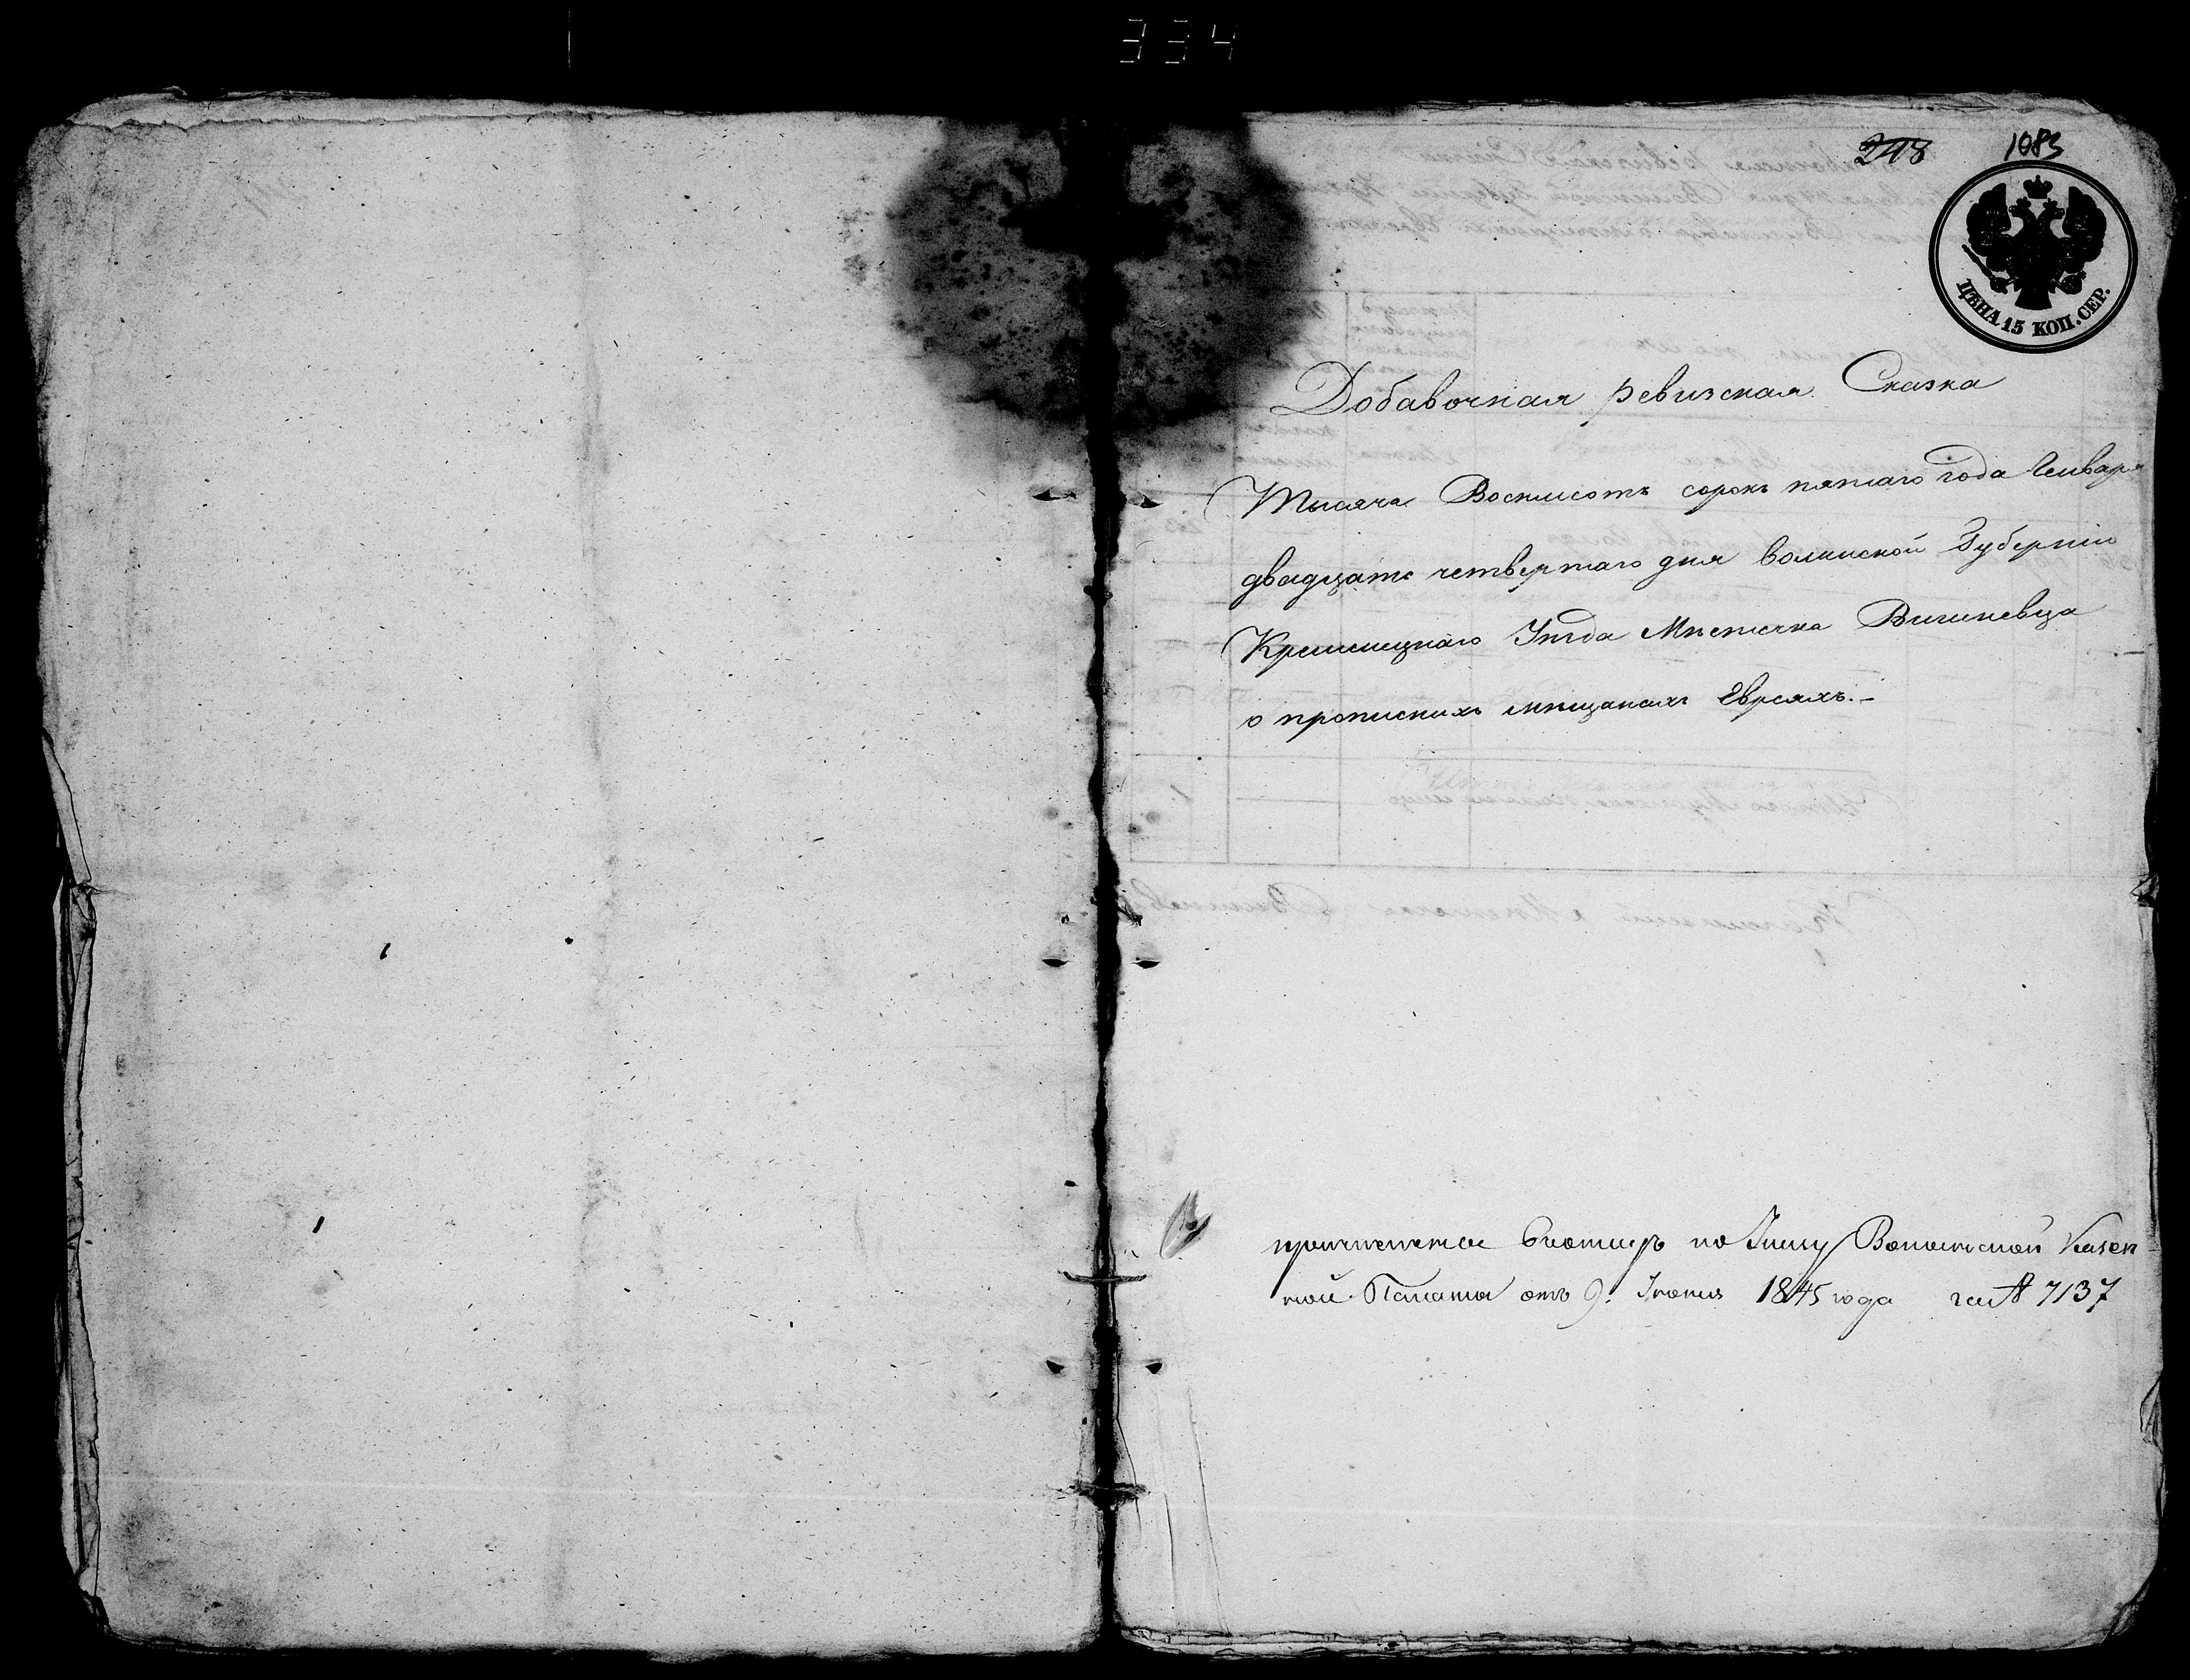 334
248 1083
ЦѢНА 15 КОП. СЕР.
Добавочная ревизская Сказка
Тысяча Восемсотъ сорокъ пятаго года Генваря
двадцать четвертаго дня волынской Губерніи
Кременецкаго Уѣзда Мѣстечка Вишневца
о прописныхъ мѣщанахъ Евреяхъ.
по Указу Волынской Казен
ной Палаты отъ 9. Іюня 1845 года за № 7137